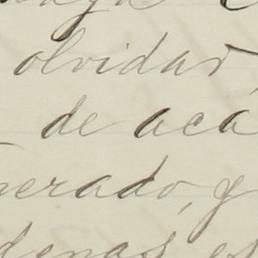 olvidar,
de acá
erado, y
denas es